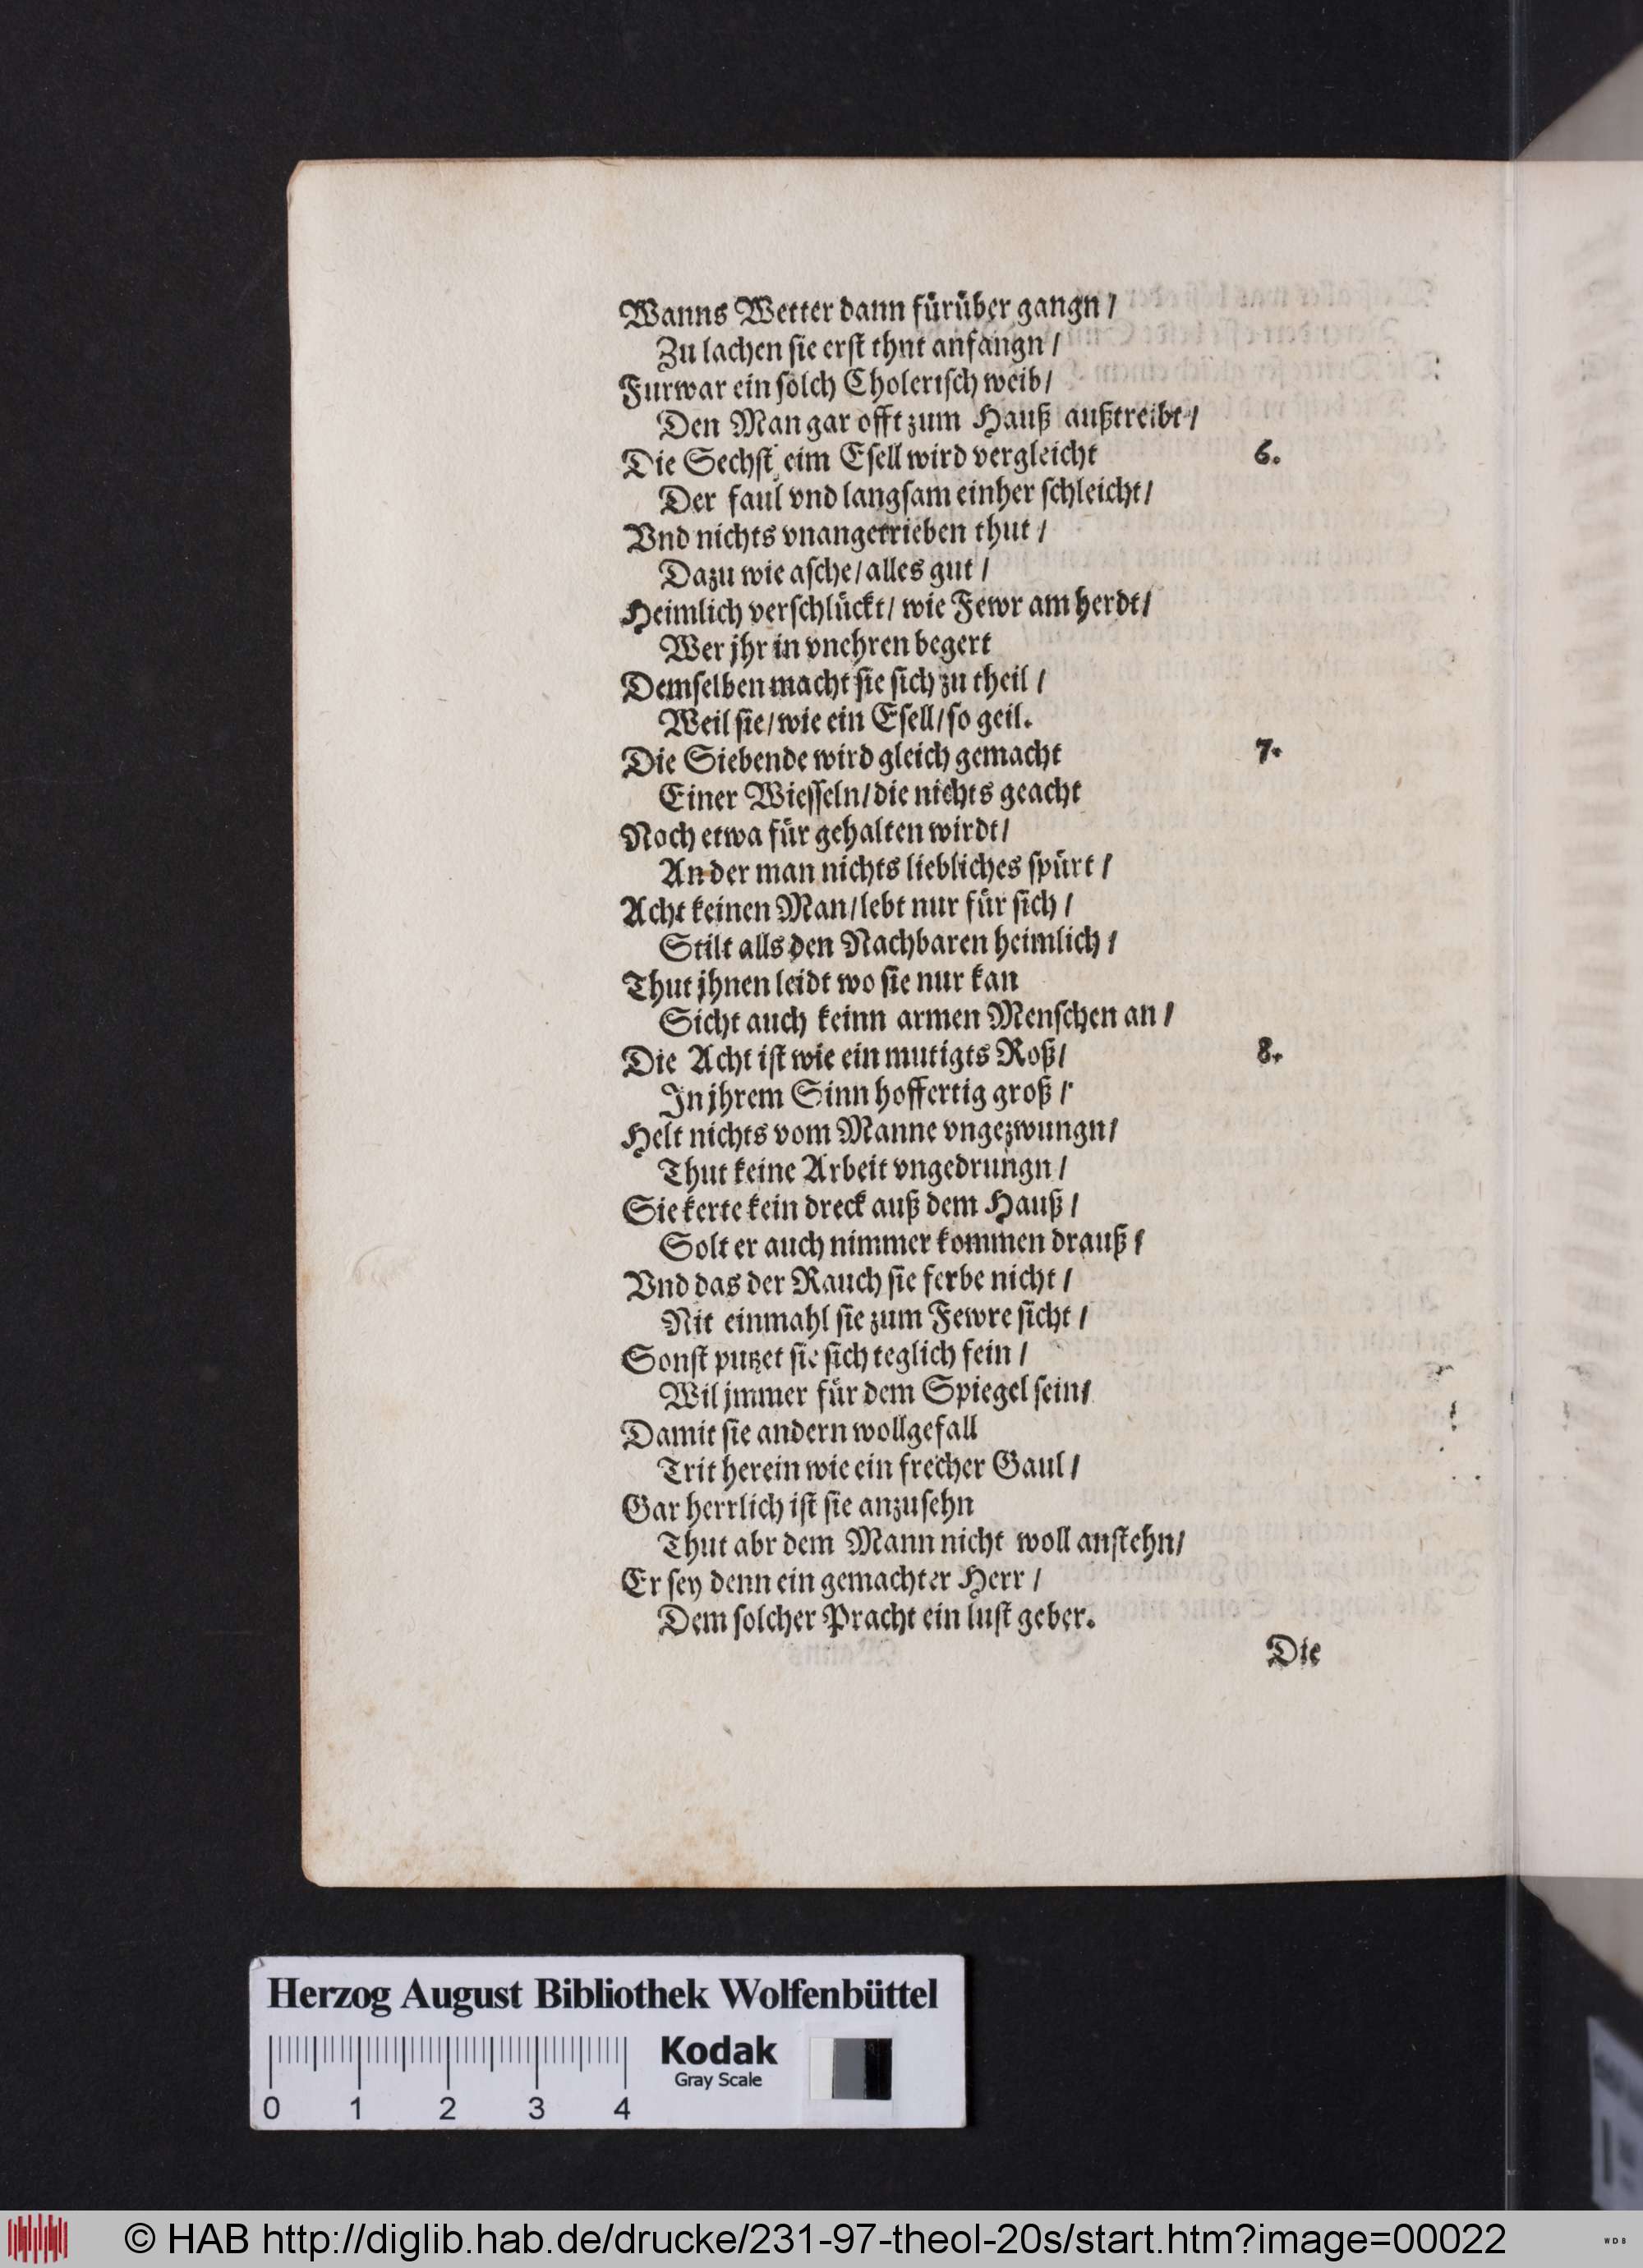 Wanns Wetter dann fürüber gangn /
Zu lachen sie erst thut anfangn /
Fürwar ein solch Cholerisch weib /
Den Man gar offt zum Hauß außtreibt /
Die Sechst eim Esell wird vergleicht 6.
Der faul vnd langsam einher schleicht /
Vnd nichts vnangetrieben thut /
Dazu wie asche / alles gut /
Heimlich verschlückt / wie Fewr am herdt /
Wer jhr in vnehren begert
Demselben macht sie sich zu theil /
Weil sie / wie ein Esell / so geil.
Die Siebende wird gleich gemacht 7.
Einer Wiesseln / die nichts geacht
Noch etwa für gehalten wirdt /
An der man nichts liebliches spürt /
Acht keinen Man / lebt nur für sich /
Stilt alls den Nachbaren heimlich /
Thut jhnen leidt wo sie nur kan
Sicht auch keinn armen Menschen an /
Die Acht ist wie ein mutigts Roß / 8.
In jhrem Sinn hoffertig groß /
Helt nichts vom Manne vngezwungn /
Thut keine Arbeit vngedrungn /
Sie kerte kein dreck auß dem Hauß /
Solt er auch nimmer kommen drauß /
Vnd das der Rauch sie ferbe nicht /
Nit einmahl sie zum Fewre sicht /
Sonst putzet sie sich teglich fein /
Wil jmmer für dem Spiegel sein /
Damit sie andern wollgefall
Trit herein wie ein frecher Gaul /
Gar herrlich ist sie anzusehn
Thut abr dem Mann nicht woll anstehn /
Er sey denn ein gemachter Herr /
Dem solcher Pracht ein lust geber.
Die
Herzog August Bibliothek Wolfenbüttel
Kodak
Gray Scale
0 1 2 3 4
© HAB http://diglib.hab.de/drucke/231-97-theol-20s/start.htm?image=00022